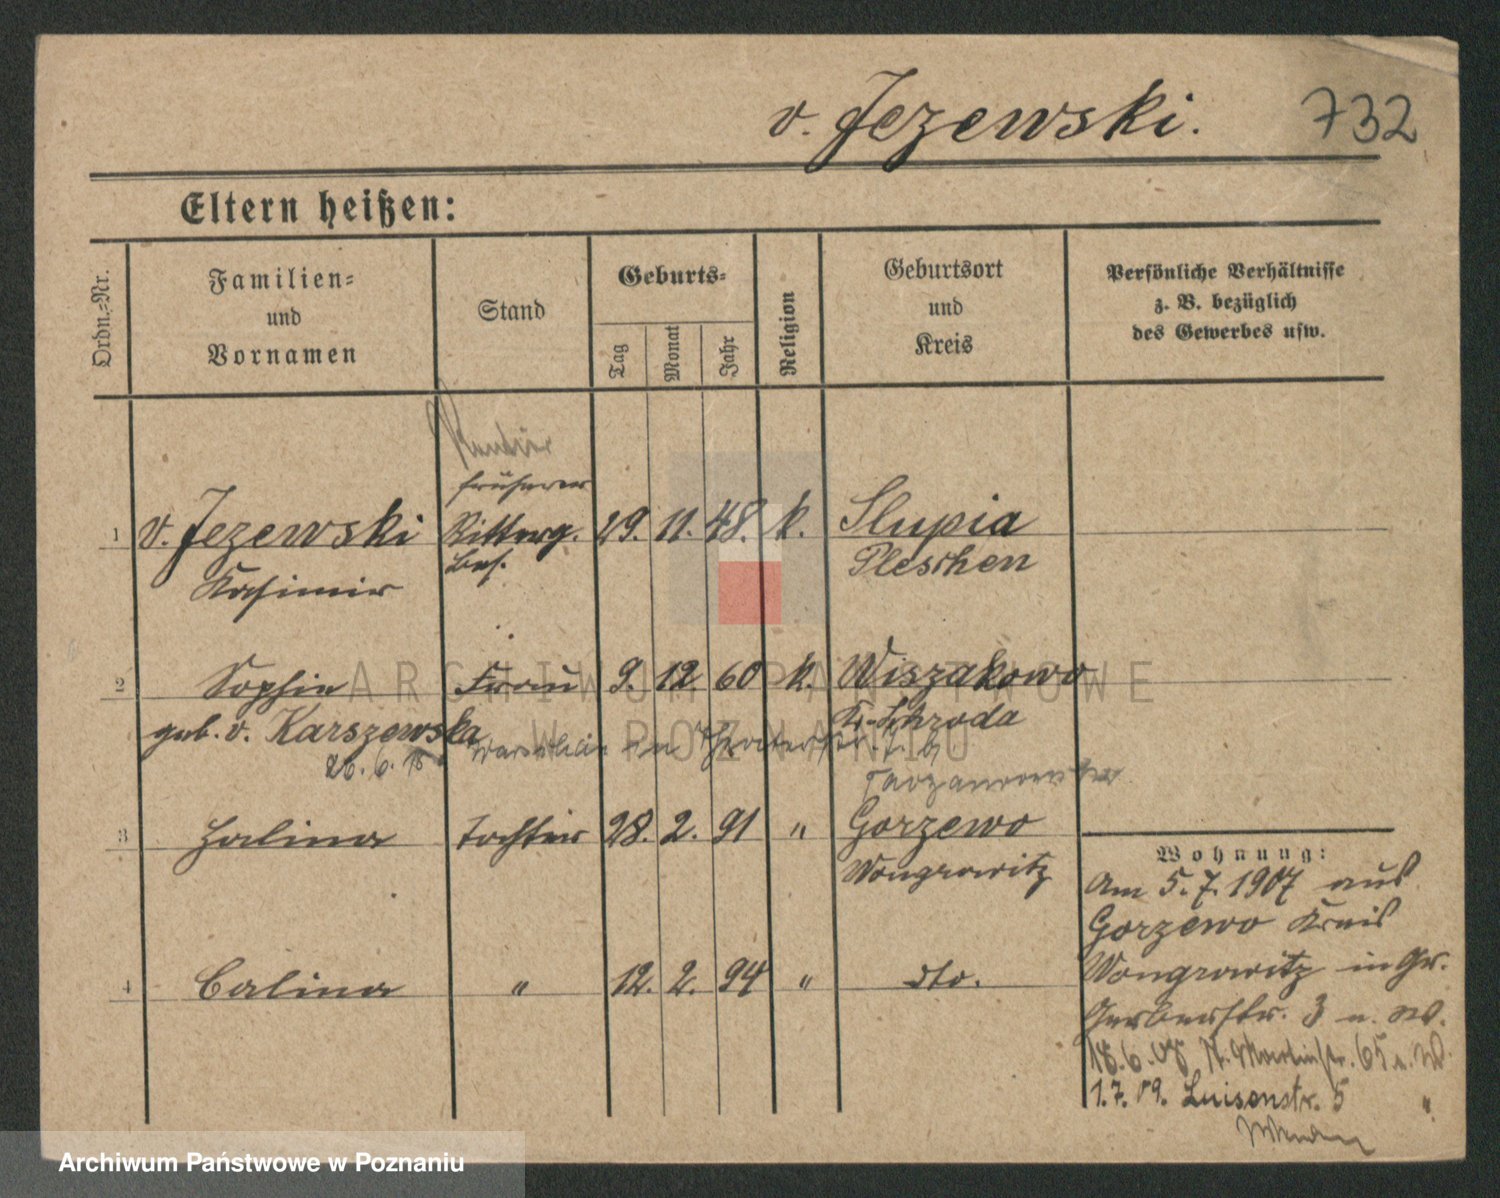 v. Jezewski. 732
Eltern heißen:
Ordn.-Nr.
Familien-
und
Vornamen
Stand
Geburts-
Tag
Monat
Jahr
Religion
Geburtsort
und
Kreis
Persönliche Verhältnisse
z. B. bezüglich
des Gewerbes usw.
Rentier
früherer
1 v. Jezewski Ritterg. 29. 11. 48. k. Slupia
Kasimir Bes. Pleschen
2 Sophie Frau 9. 12. 60 k. Wiszakowo
geb. v. Karszewska Kr. Schroda
26. 6. 15
3 Halina Tochter 28. 2. 91 " Gorzewo
Wongrowitz
4 Calina " 12. 2. 94 " dto.
Wohnung:
Am 5. 7. 1907 aus
Gorzewo Kreis
Wongrowitz in Gr.
Gerberstr. 3 n. W.
18. 6. 08 St. Martinstr. 65 n. W.
1. 7. 09. Luisenstr. 5 "
ARCHIWUM PAŃSTWOWE
W POZNANIU
Archiwum Państwowe w Poznaniu